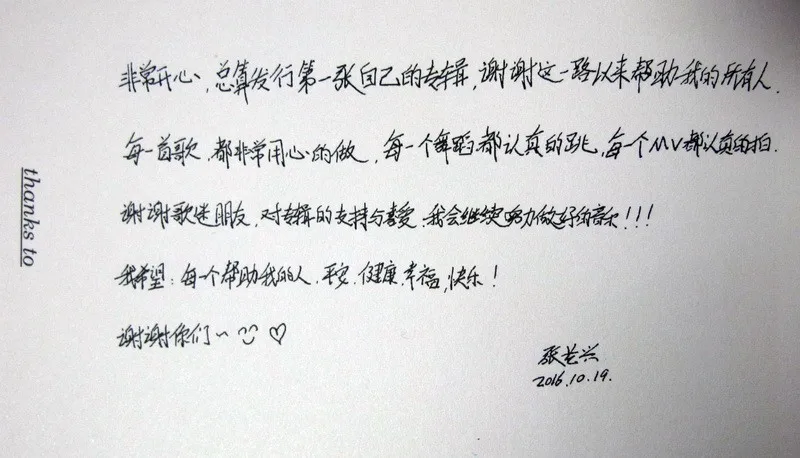 thanks to
非常开心,总算发行第一张自己的专辑,谢谢这一路以来帮助我的所有人.
每一首歌,都非常用心的做,每一个舞蹈都认真的跳,每一个MV都认真的拍.
谢谢歌迷朋友,对专辑的支持与喜爱.我会继续努力做好的音乐!!!
我希望:每一个帮助我的人.平安.健康.幸福,快乐!
谢谢你们~
张艺兴
2016.10.19.